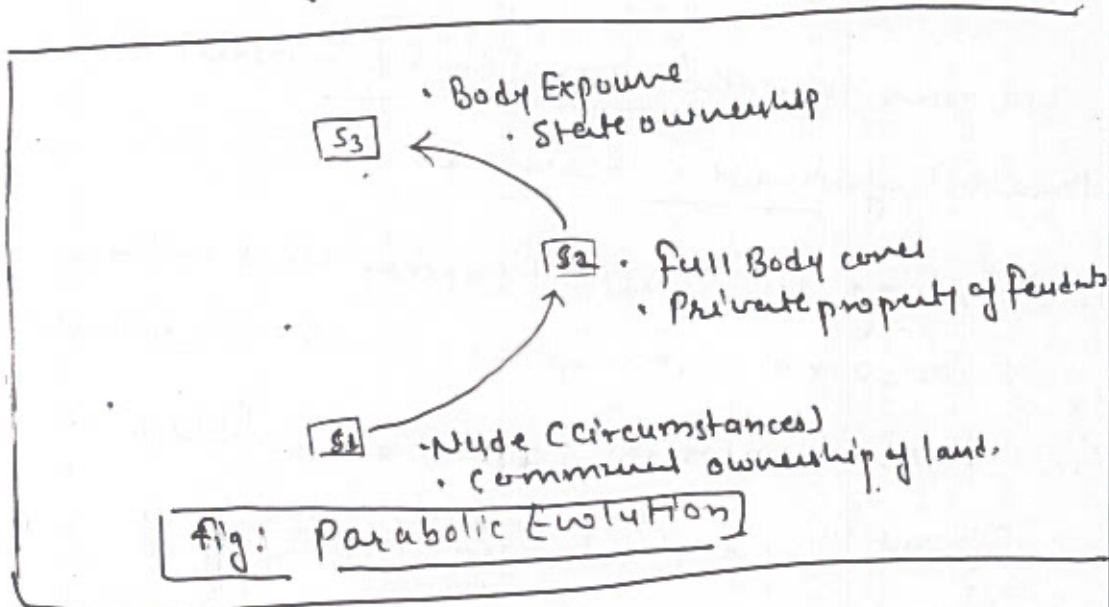 • Body Exposure
• State ownership
S3
S2 • full Body cover
• Private property of feudals
S1 • Nude (Circumstances)
• Communal ownership of land.
fig: Parabolic Evolution